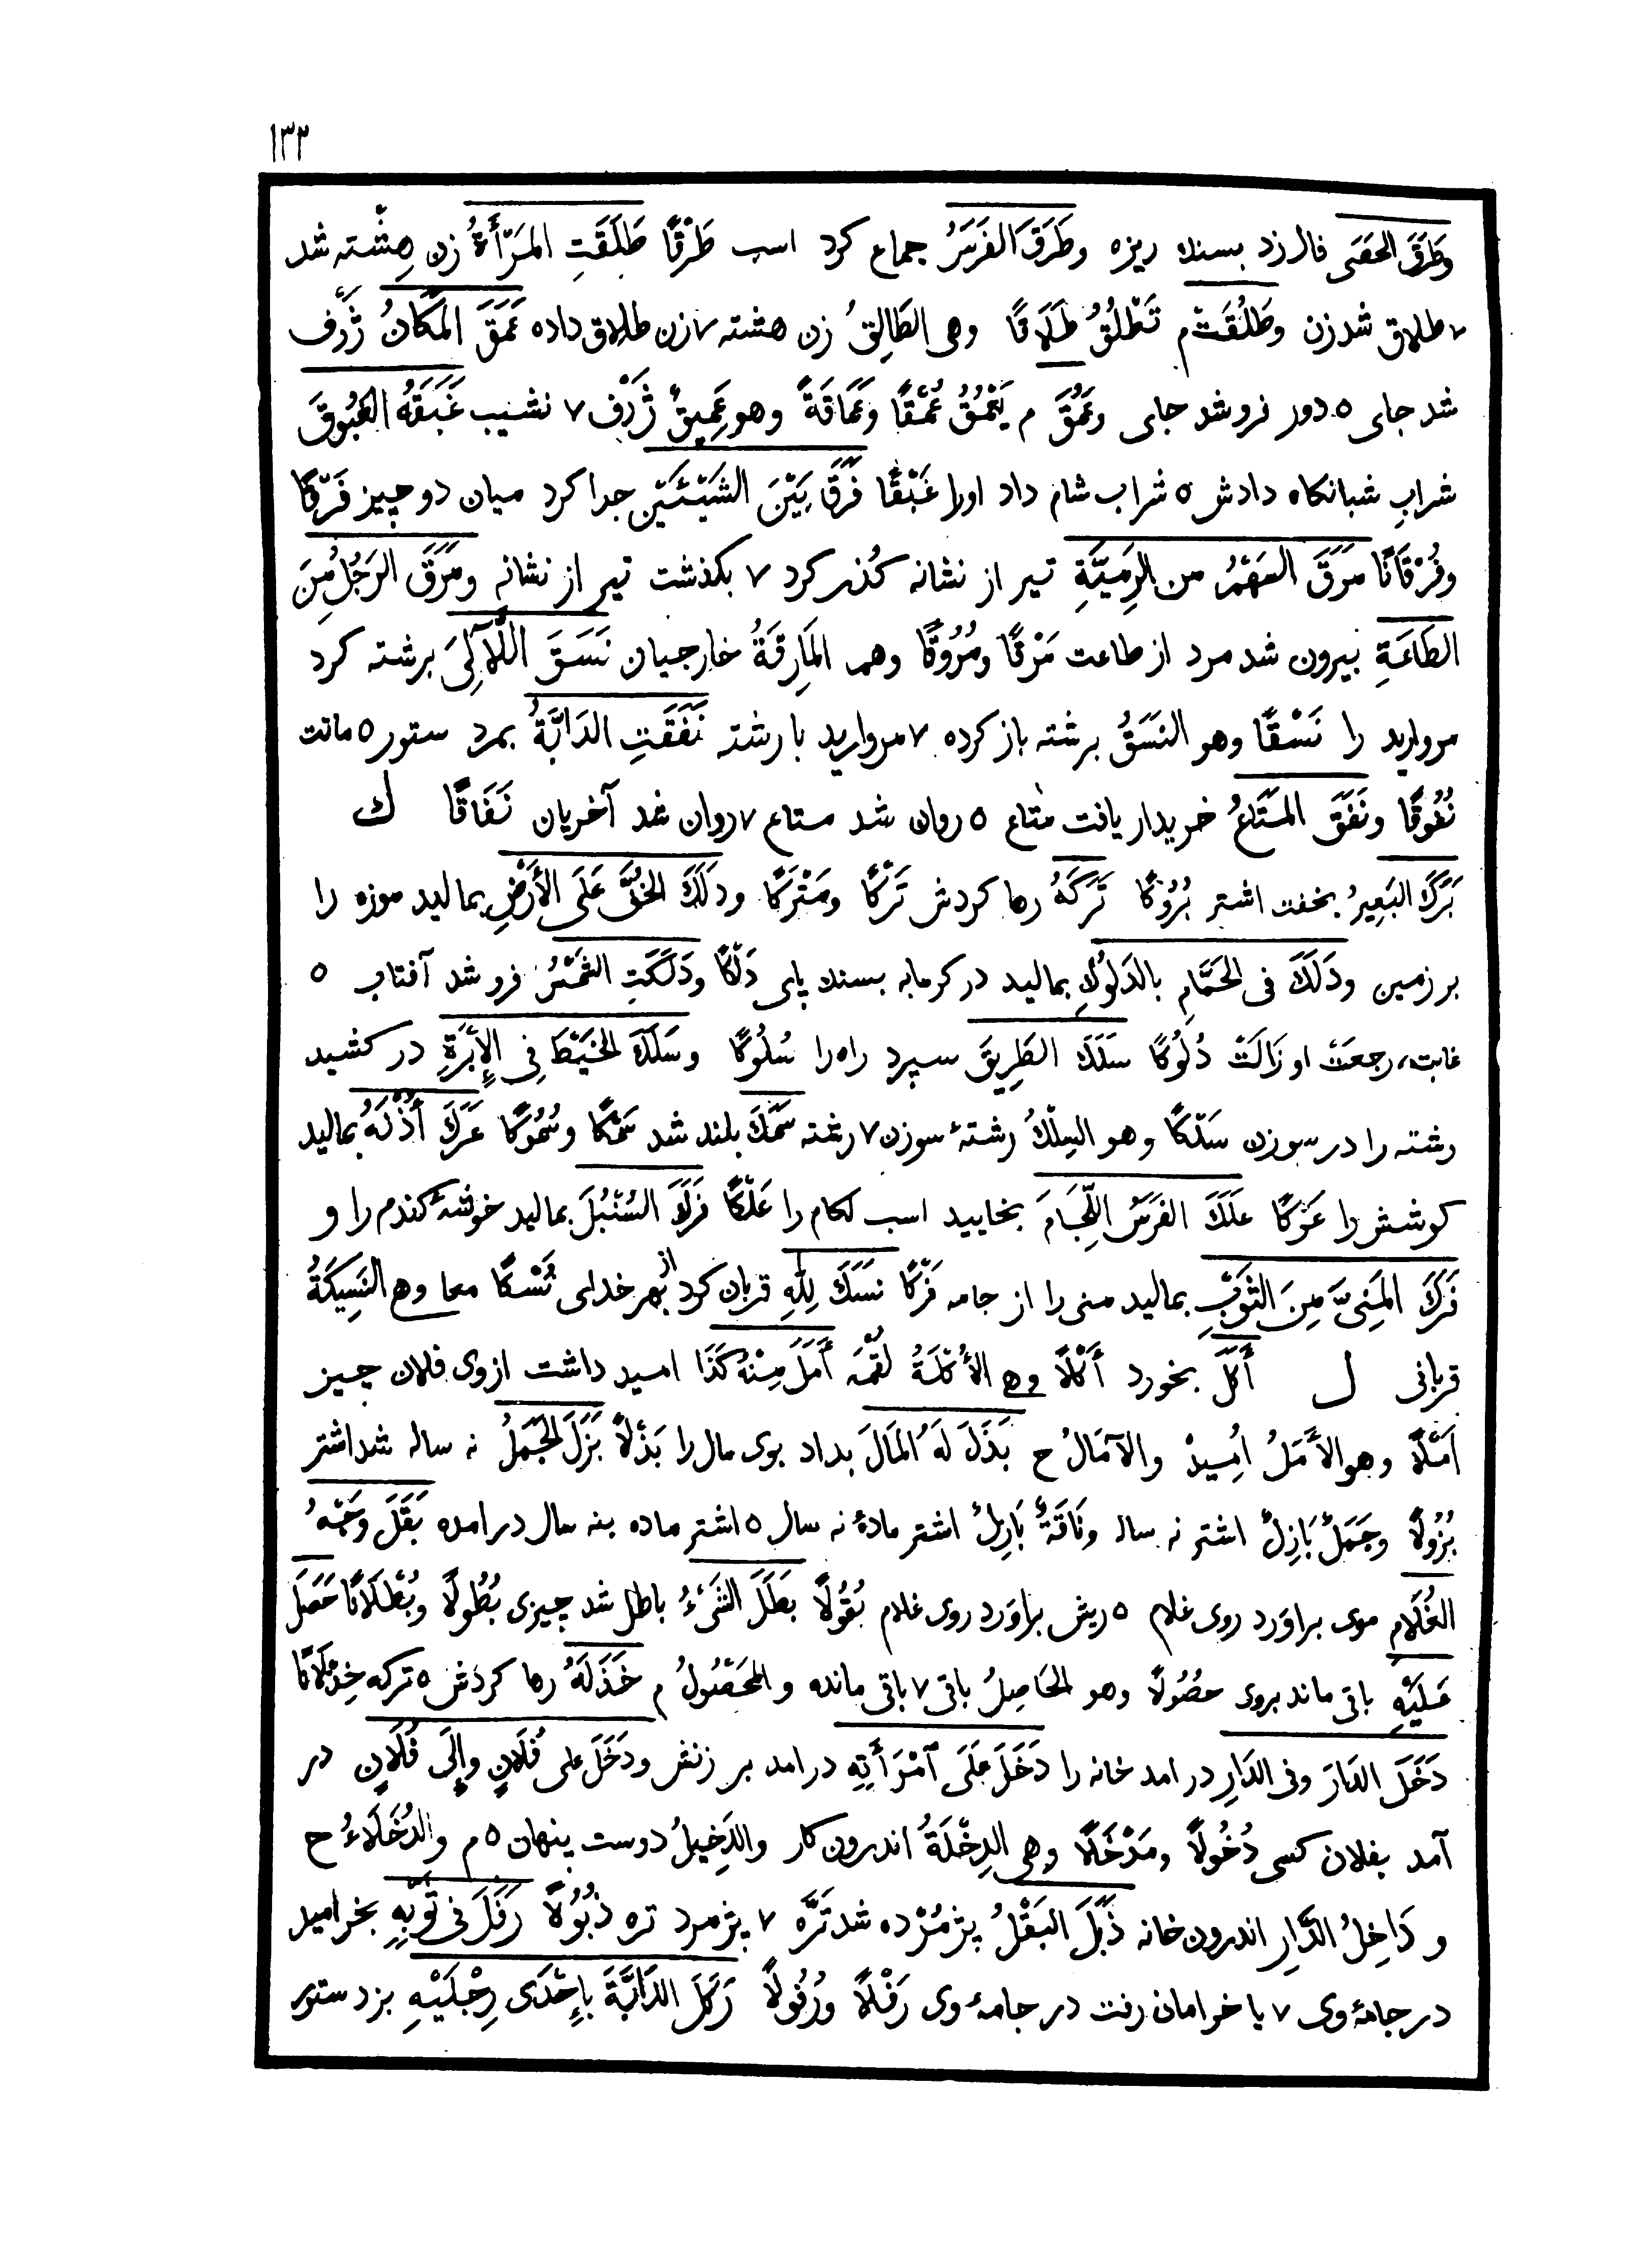 ١٣٣
وطَرَقَ الحَصَى فال زد بسنك ريزه وطَرَقَ الفَرَسُ جماع كرد اسب طَرْقًا طَلَقَتِ المَرْأَةُ زن هِشْته شد
٧ طلاق شد زن وطَلُقَتْ م تَطْلُقُ طَلَاقًا وهى الطَالِقُ زن هشته ٧ زن طلاق داده عَمَقَ المَكَانُ ژَرْف
شد جاى ٥ دور فرو شد جاى وعَمُقَ م يَعْمُقُ عُمْقًا وعَمَاقَةً وهو عَمِيقٌ ژَرْف ٧ نشيب غَبَقَهُ الغَبُوقَ
شرابِ شبانكاه دادش ٥ شراب شام داد اورا غَبْقًا فَرَقَ بَيْنَ الشَيْئَيْنِ جدا كرد ميان دو چيز فَرْقًا
وفُرْقَانًا مَرَقَ السَهْمُ من الرَمِيَّةِ تير از نشانه كُذر كرد ٧ بكذشت تير از نشانه ومَرَقَ الرَجُلُ مِنَ
الطَاعَةِ بيرون شد مرد از طاعت مَرْقًا ومُرُوقًا وهم المَارِقَةُ خارجيان نَسَقَ اللَّآلِىَ برشته كرد
مرواريد را نَسْقًا وهو النَسَقُ برشته باز كرده ٧ مرواريد با رشته نَفَقَتِ الدَابَّةُ بمرد ستور ٥ ماتت
نُفُوقًا ونَفَقَ المَتَاعُ خريدار يافت متاع ٥ روان شد متاع ٧ روان شد آخريان نَفَاقًا ك
بَرَكَ البَعِيرُ بخفت اشتر بُرُوكًا تَرَكَهُ رها كردش تَرْكًا ومَتْرَكًا ودَلَكَ الخُفَّ عَلَى الأَرْضِ بماليد موزه را
بر زمين ودَلَكَ فى الحَمَّامِ بالدَلُوكِ بماليد در كرمابه بسنك پاى دَلْكًا ودَلَكَتِ الشَمْسُ فرو شد آفتاب ٥
غابت، رجعت او زَالَتْ دُلُوكًا سَلَكَ الطَرِيقَ سپرد راه را سُلُوكًا وسَلَكَ الخَيْطَ فِى الإِبْرَةِ در كشيد
رشته را در سوزن سَلْكًا وهو السِلْكُ رشتهٔ سوزن ٧ رشته سَمَكَ بلند شد سَمْكًا وسُمُوكًا عَرَكَ أُذْنَهُ بماليد
كوشش را عَرْكًا عَلَكَ الفَرَسُ اللِّجَامَ بخاييد اسب لكام را عَلْكًا فَرَكَ السُنْبُلَ بماليد خوشهٔ كندم را و
فَرَكَ المَنِىَّ مِنَ الثَوْبِ بماليد منى را از جامه فَرْكًا نَسَكَ لِلّٰهِ قربان كرد از بهر خداى نُسْكًا معا وهى النَسِيكَةُ
قربانى ل أَكَلَ بخورد أَكْلًا وهى الأُكْلَةُ لُقْمَه أَمَلَ مِنْهُ كَذَا اميد داشت از وى فلان چيز
أَمْلًا وهو الأَمَلُ اُمِيدْ والآمَالُ ح بَذَلَ لَهُ المَالَ بداد بوى مال را بَذْلًا بَزَلَ الجَمَلُ نه ساله شد اشتر
بُزُولًا وجَمَلٌ بَازِلٌ اشتر نه ساله ونَاقَةٌ بَازِلٌ اشتر مادهٔ نه سال ٥ اشتر ماده بنه سال درامده بَقَلَ وَجْهُ
الغُلَامِ موى براوَرد روى غلام ٥ ريش براوَرد روى غلام بُقُولًا بَطَلَ الشَىْءُ باطل شد چيزى بُطُولًا وبُطْلَانًا حَصَلَ
عَلَيْهِ باقى ماند بروى حصُولًا وهو الحَاصِلُ باقى ٧ باقى مانده والمَحْصُولُ م خَذَلَهُ رها كردش ٥ تركه خِذْلَانًا
دَخَلَ الدَارَ وفى الدَارِ درامد خانه را دَخَلَ عَلَى ٱمْرَأَتِهِ درامد بر زنش ودَخَلَ على فُلَانٍ وإِلَى فُلَانٍ در
آمد بفلان كسى دُخُولًا ومَدْخَلًا وهى الدِخْلَةُ اندرون كار والدَخِيلُ دوست پنهان ٥ م والدُخَلَاءُ ح
و دَاخِلُ الدَّارِ اندرون خانه ذَبَلَ البَقْلُ پژمُرْده شد تَرَّه ٧ پژمرد تره ذُبُولًا رَفَلَ فى ثَوْبِهِ بخراميد
در جامهٔ وى ٧ با خرامان رفت در جامهٔ وى رَفْلًا ورُفُولًا رَكَلَ الدَابَّةَ بإِحْدَى رِجْلَيْهِ بزد ستور